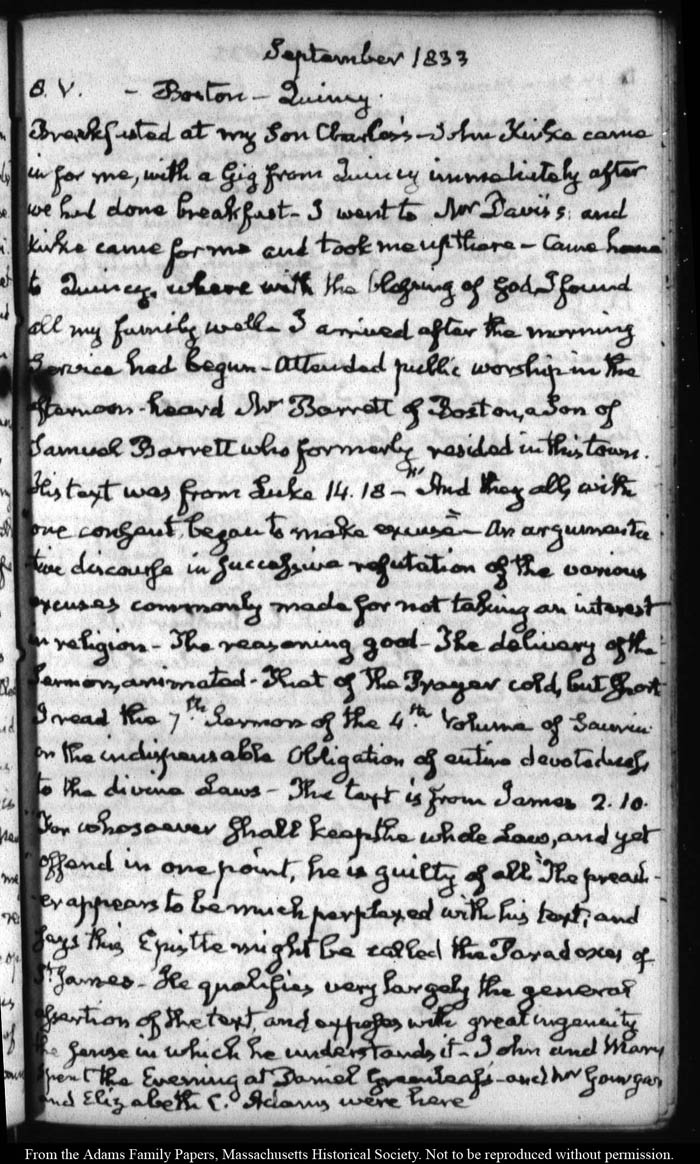 September 1833
8. V. - Boston - Quincy.
Breakfasted at my Son Charles's - John Kirke came
in for me, with a Gig from Quincy immediately after
we had done breakfast - I went to Mr Davis's, and
Kirke came for me and took me up there - Came home
to Quincy, where with the blessing of God, I found
all my family well - I arrived after the morning
Service had begun - Attended public worship in the
afternoon - heard Mr Barrett of Boston, a Son of
Samuel Barrett who formerly resided in this town.
His text was from Luke 14. 18 - "And they all, with
one consent, began to make excuse" - An argumenta
tive discourse in successive refutation of the various
excuses commonly made for not taking an interest
in religion - The reasoning good - The delivery of the
Sermon, animated - That of the Prayer cold, but short
I read the 7th Sermon of the 4th Volume of Saurin
on the indispensable Obligation of entire devotedness
to the divine Laws - The text is from James 2. 10.
For whosoever shall keep the whole Law, and yet
offend in one point, he is guilty of all" The preach-
er appears to be much perplexed with his text, and
says this Epistle might be called the Paradoxes of
St James - He qualifies very largely the general
assertion of the text, and exposes with great ingenuity
the sense in which he understands it - John and Mary
spent the Evening at Daniel Greenleaf's - and Mr Gourgas
and Elizabeth C. Adams were here
From the Adams Family Papers, Massachusetts Historical Society. Not to be reproduced without permission.